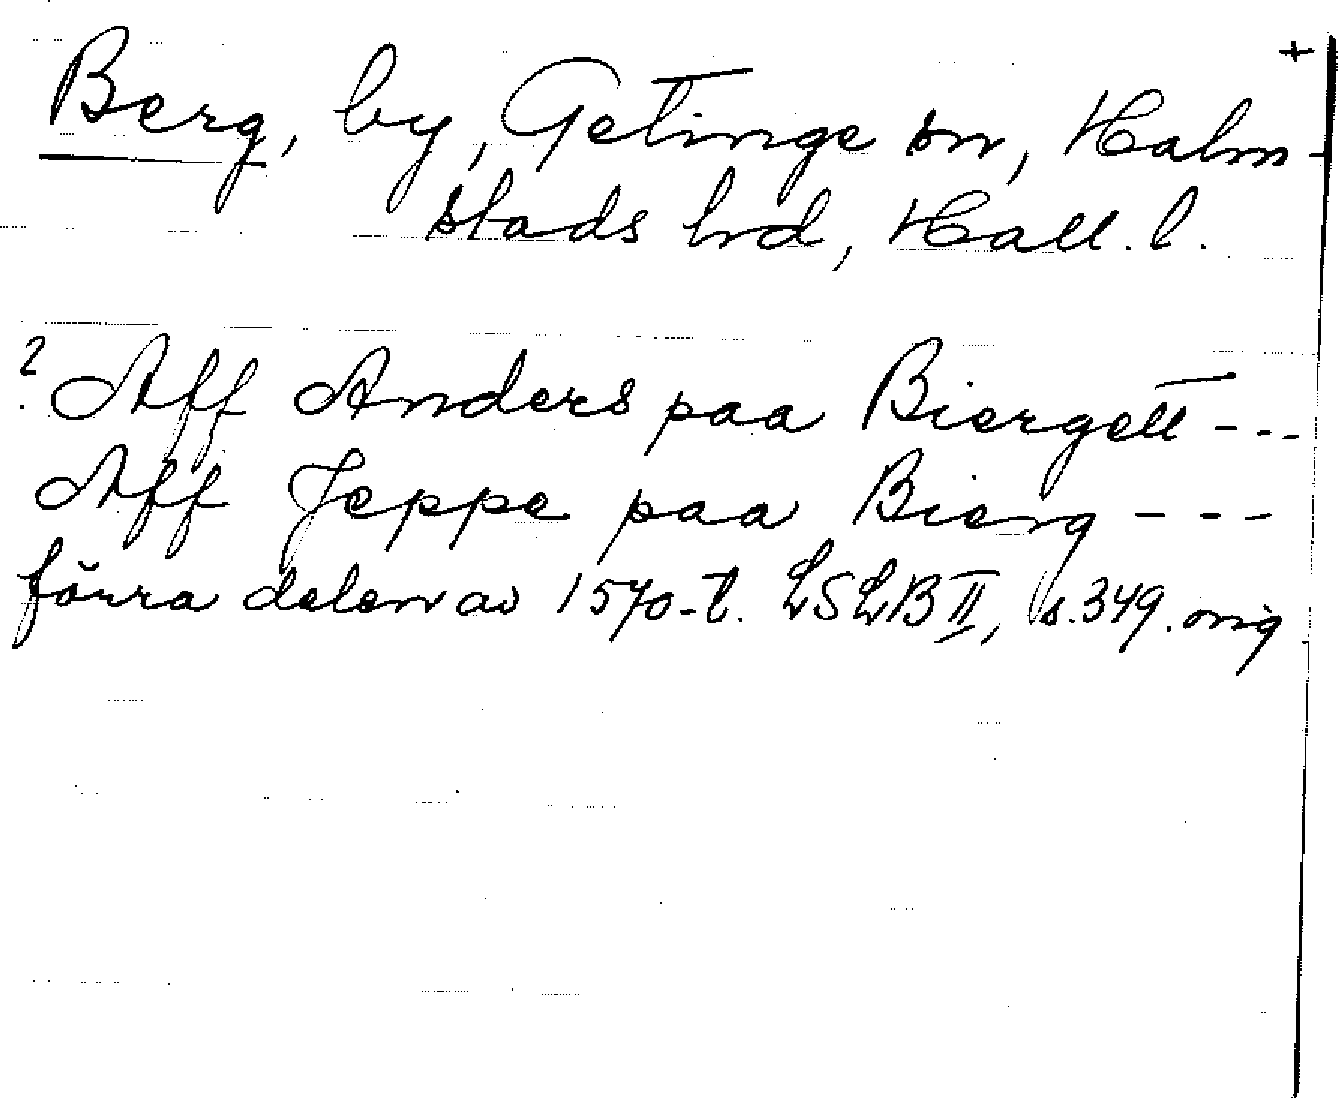 +
Berg, by, Getinge sn, Halm-
stads hrd, Hall. l.
? Aff Anders paa Biergett ---
Aff Jeppe paa Bierg ---
förra delen av 1570-t. LSLB II, s. 349. orig